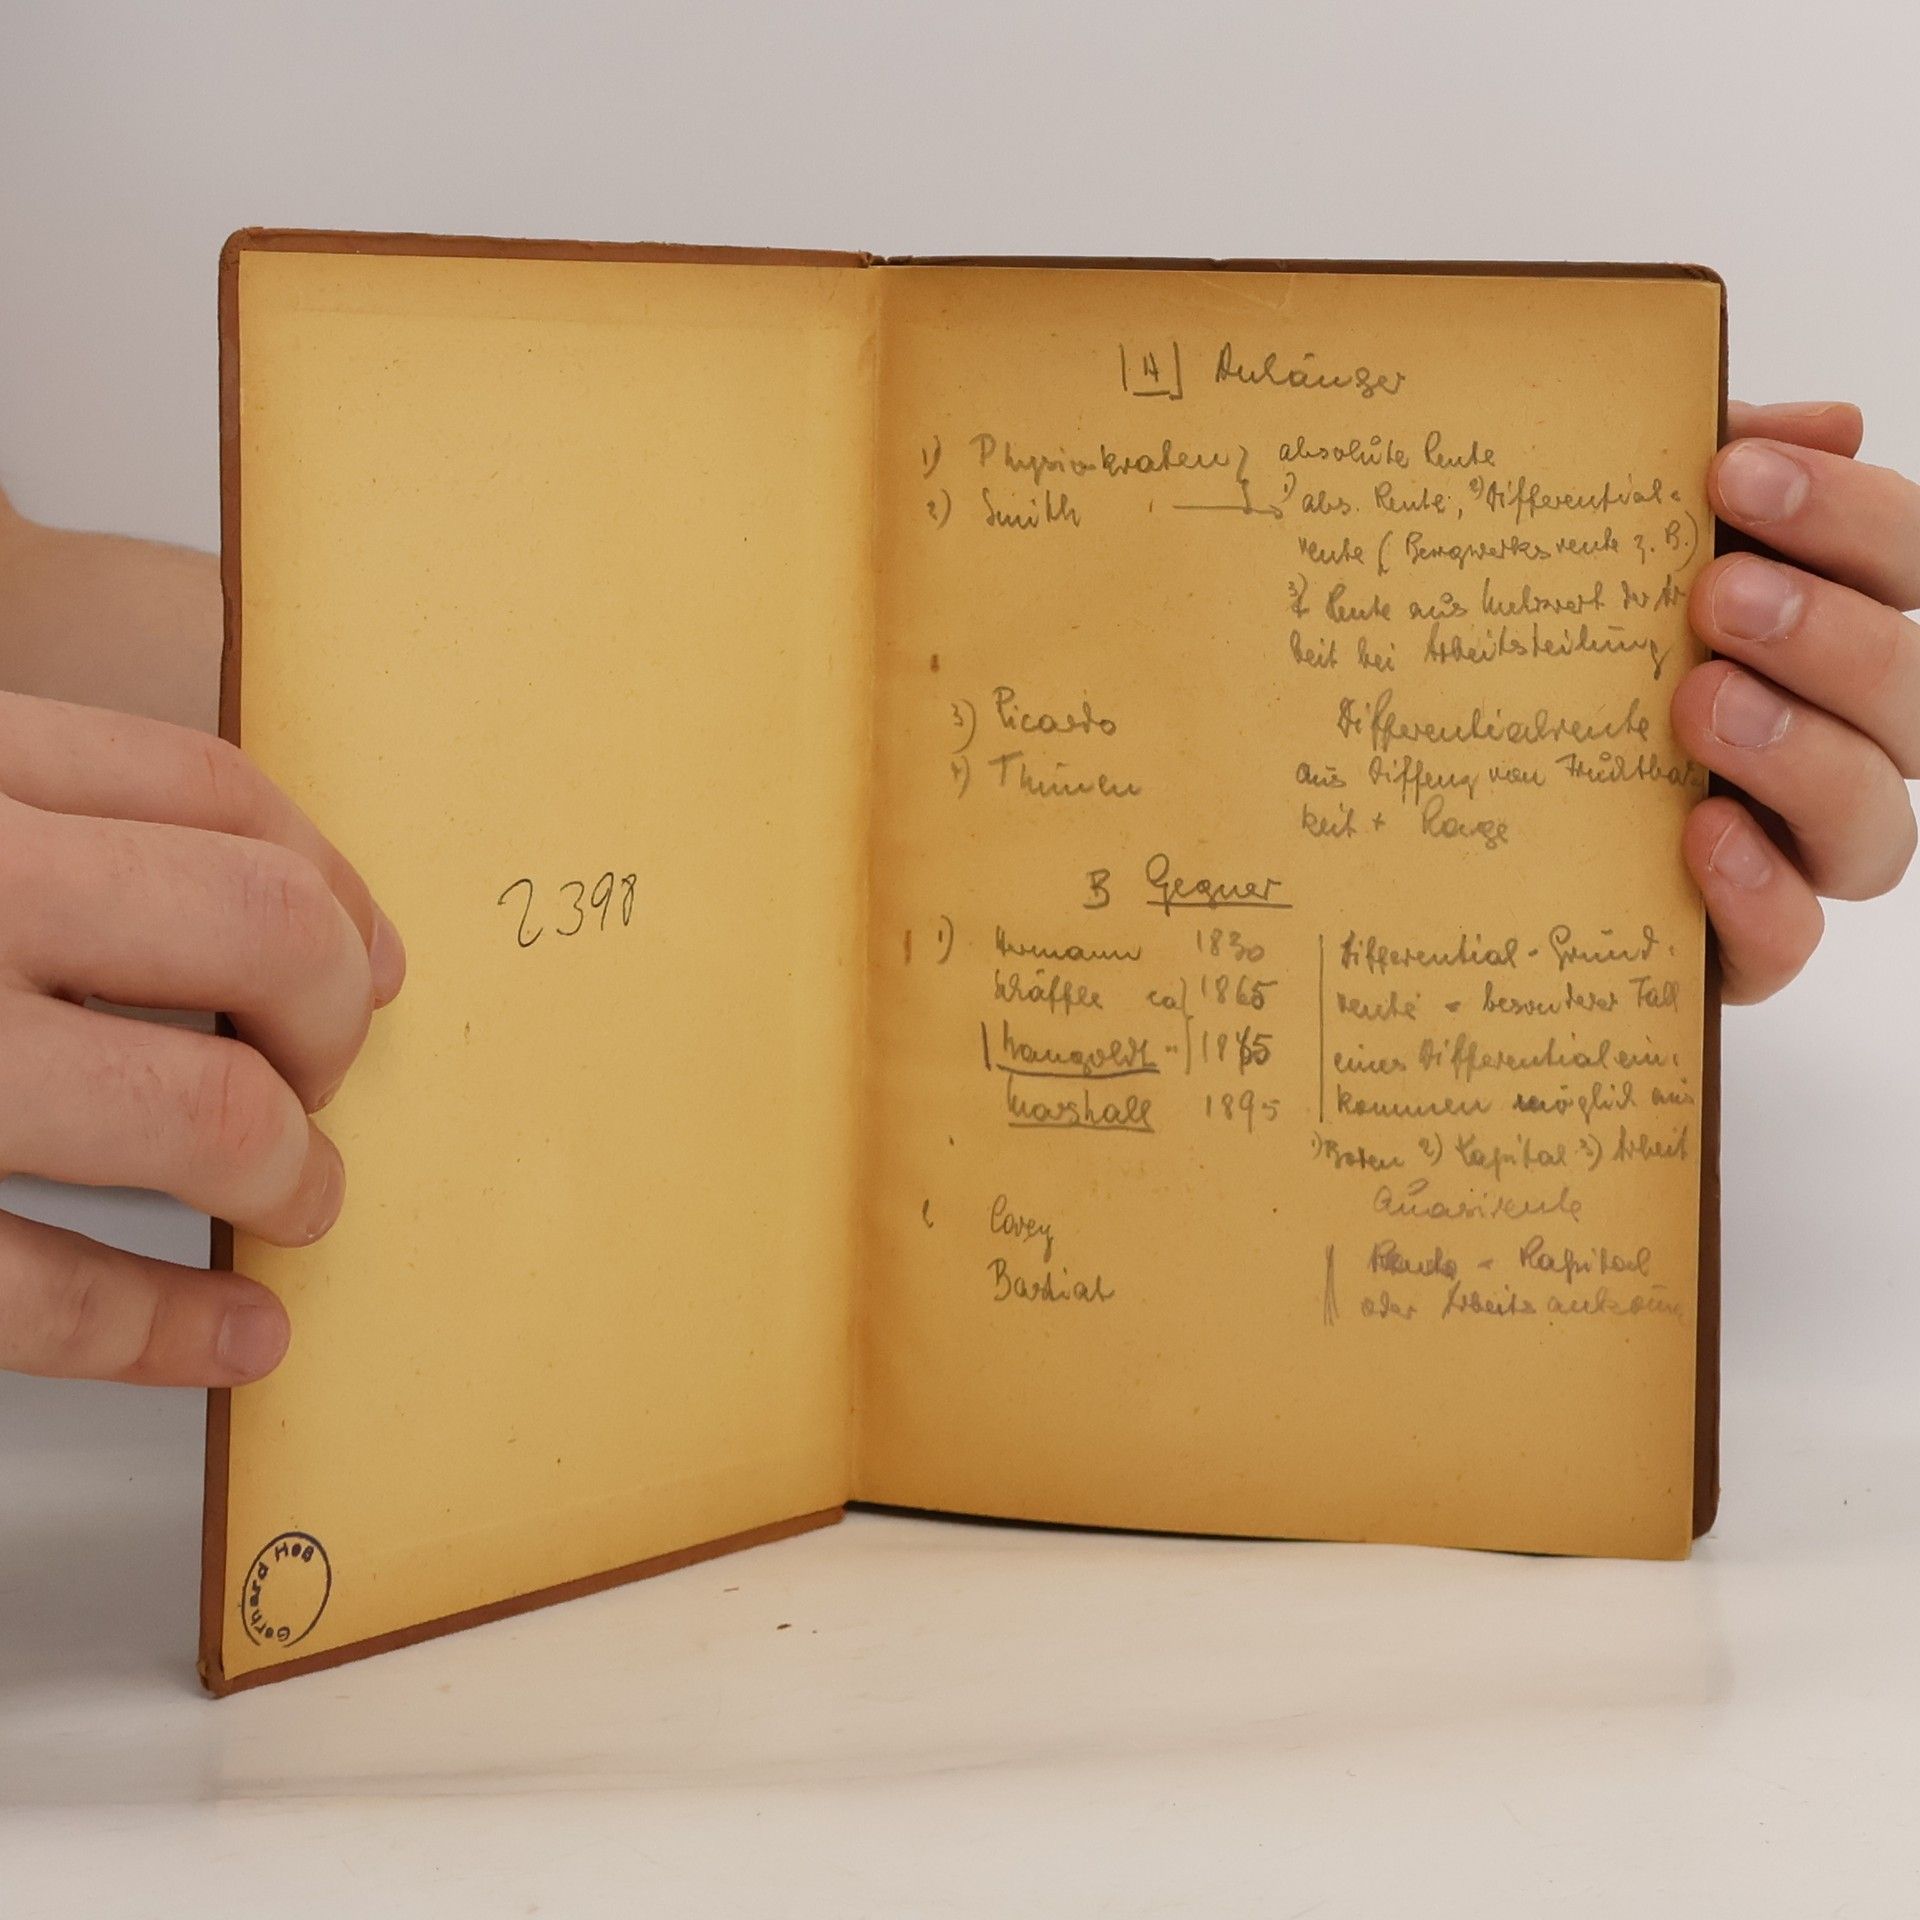 2398
Gerhard Heß
[A] Anhänger
1) Physiokraten } absolute Rente
2) Smith → 1) abs. Rente, 2) Differential-
rente (Bergwerksrente z. B.)
3) Rente aus Mehrwert der Ar
beit bei Arbeitsteilung
3) Ricardo Differentialrente
4) Thünen aus von Fruchtbar
keit + Lage
B Gegner
1) Hermann 1830
Schäffle ca 1865
Mangoldt " 18 5
Marshall 1895
Differential-Grund-
rente = besonderer Fall
eines Differentialein-
kommen möglich aus
1) Boden 2) Kapital 3) Arbeit
Quasirente
2 Carey
Bastiat
Rente = Kapital
oder